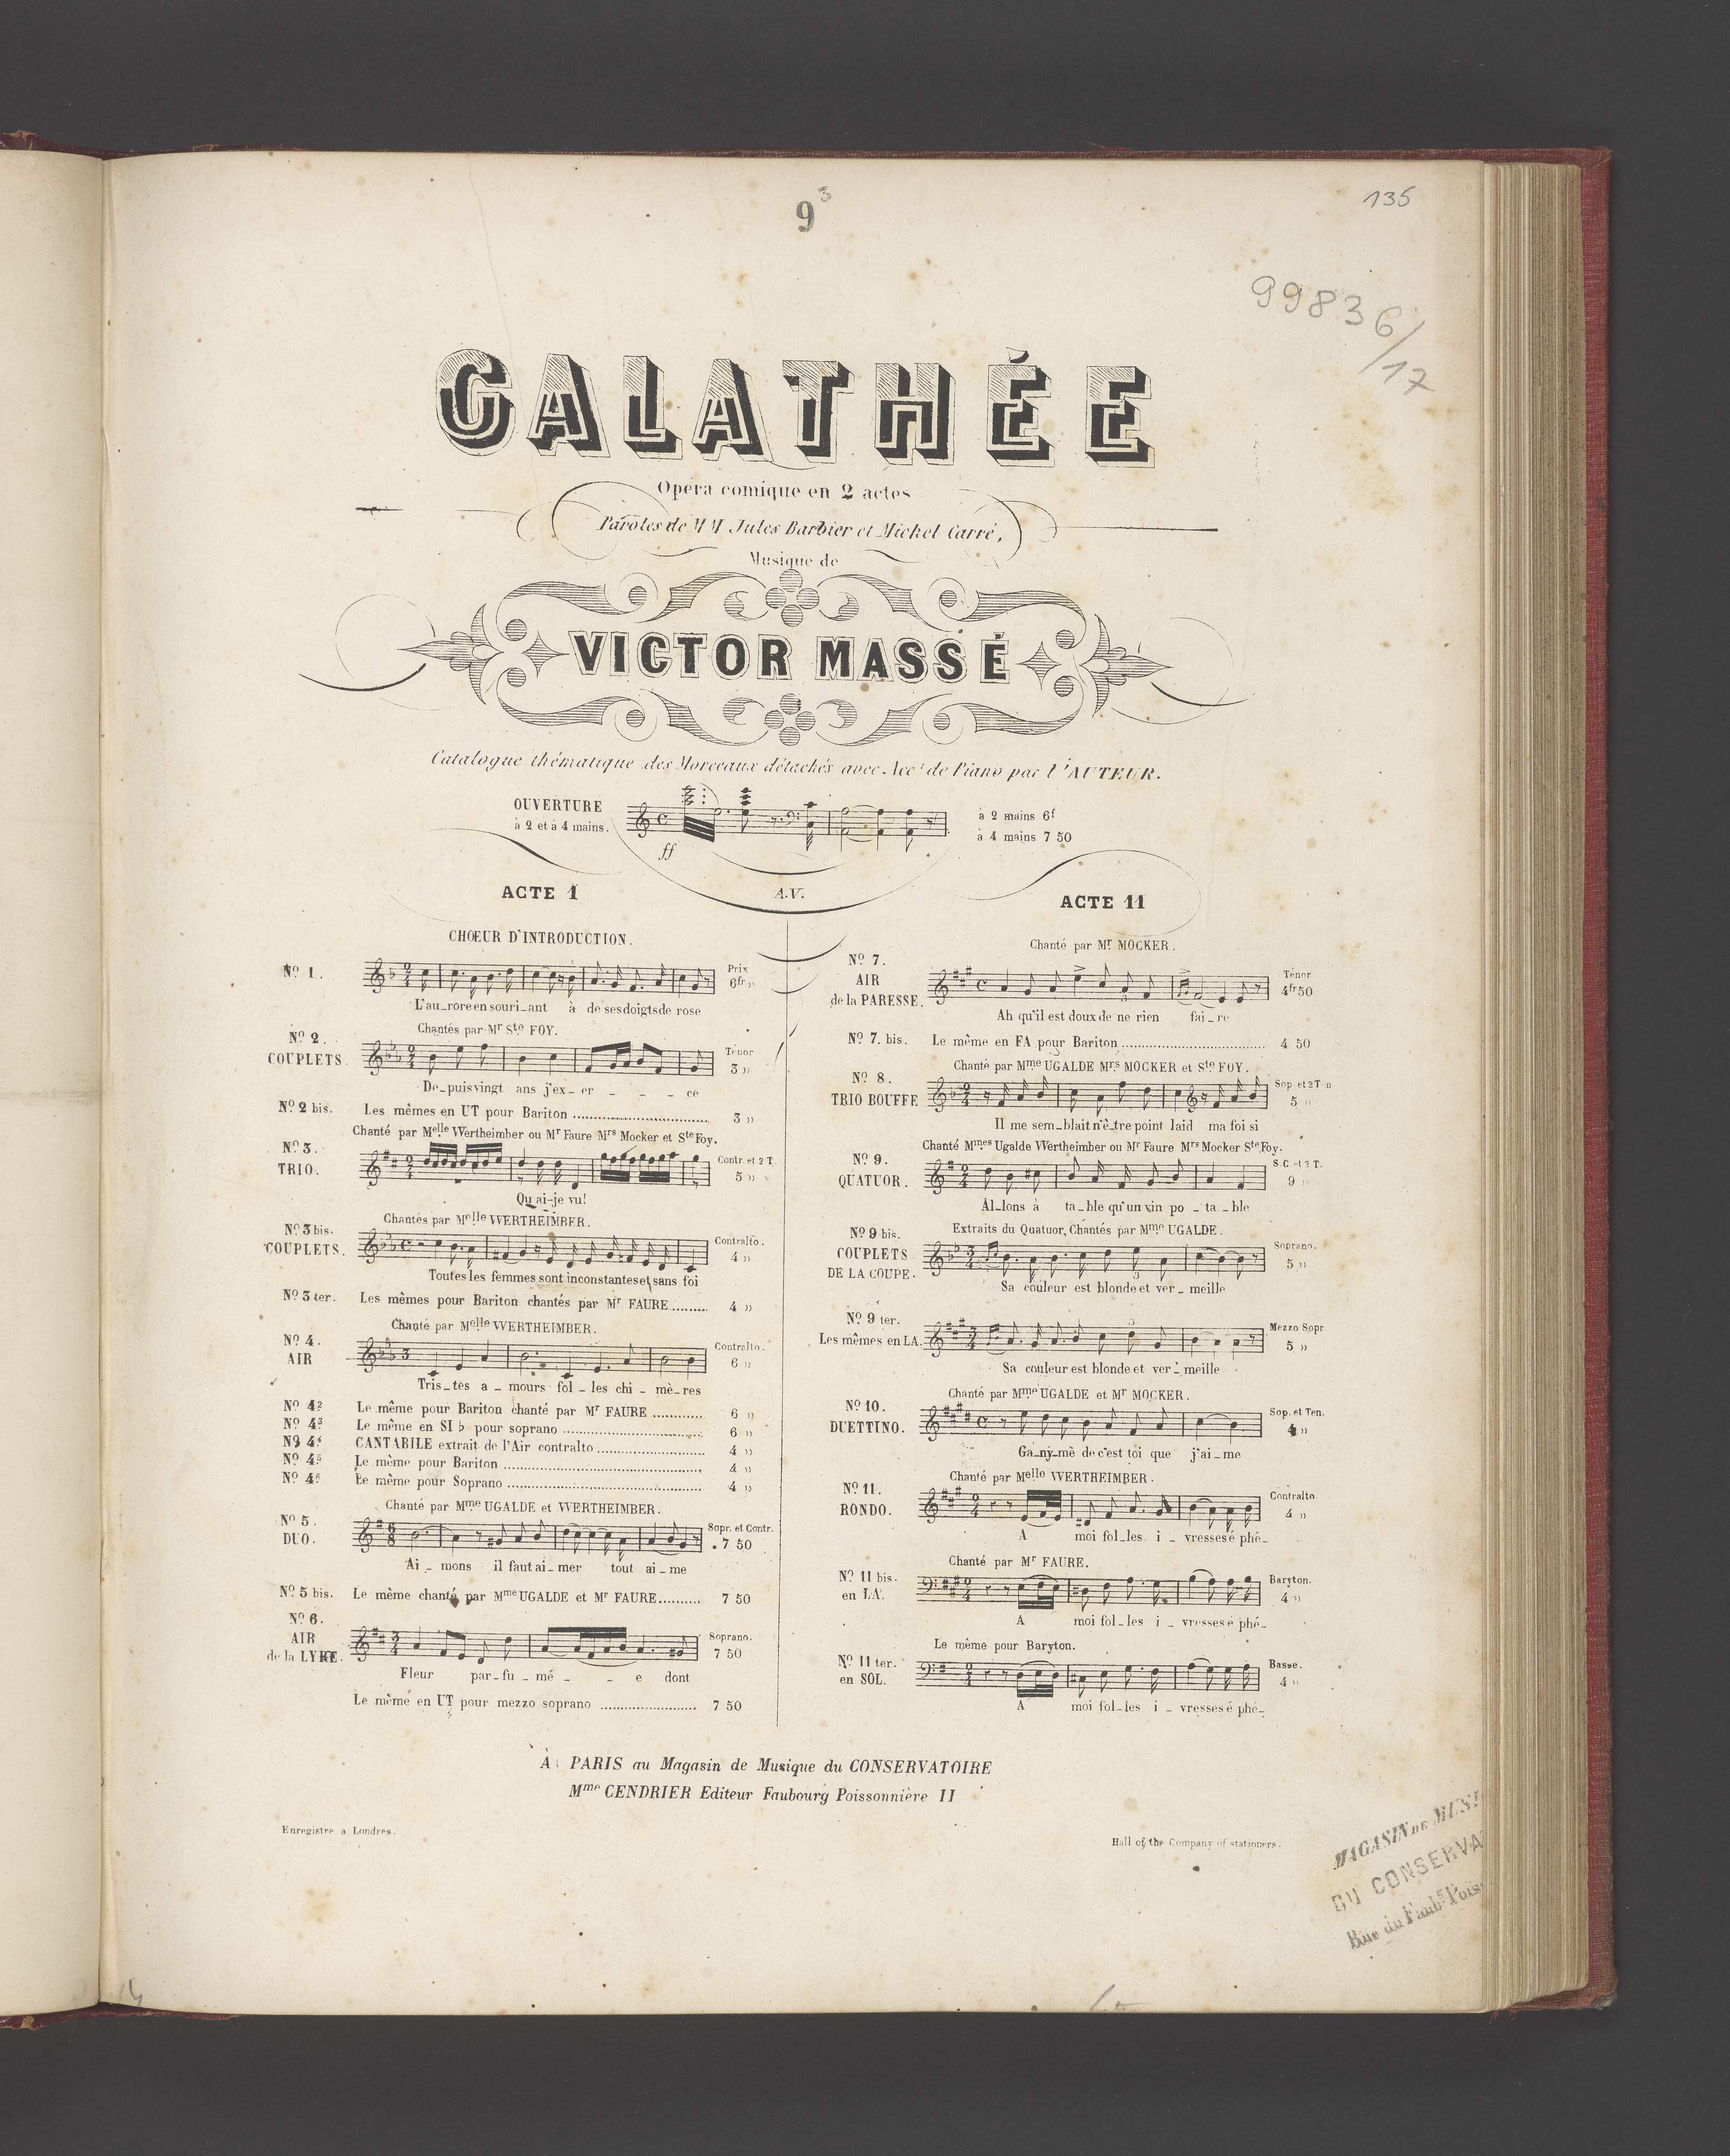 9 3
135
99836/17
GALATHÉE
Opéra comique en 2 actes
Paroles de MM Jules Barbier et Michel Carré,
Musique de
VICTOR MASSÉ
Catalogue thématique des Morceaux détachés avec Acct de Piano par L'AUTEUR.
OUVERTURE
à 2 et à 4 mains.
ff
à 2 mains 6f
à 4 mains 7 50
A.V.
ACTE 1
CHŒUR D'INTRODUCTION.
No 1.
Prix
6fr »
L'au_rore en souri_ant à de ses doigts de rose
Chantés par Mr Ste FOY.
No 2.
COUPLETS.
Ténor
3 »
De_puis vingt ans j'ex_er _ _ _ ce
No 2 bis. Les mêmes en UT pour Bariton 3 »
Chanté par Melle Wertheimber ou Mr Faure Mrs Mocker et Ste Foy.
No 3.
TRIO.
Contr. et 2 T.
5 »
Qu'ai-je vu!
Chantés par Melle WERTHEIMBER.
No 3 bis.
COUPLETS.
Contralto.
4 »
Toutes les femmes sont inconstantes et sans foi
No 3 ter. Les mêmes pour Bariton chantés par Mr FAURE 4 »
Chanté par Melle WERTHEIMBER.
No 4.
AIR
Contralto.
6 »
Tris_tes a_mours fol_les chi_mè_res
No 4 2 Le même pour Bariton chanté par Mr FAURE 6 »
No 4 3 Le même en SI b pour soprano 6 »
No 4 4 CANTABILE extrait de l'Air contralto 4 »
No 4 5 Le même pour Bariton 4 »
No 4 6 Le même pour Soprano 4 »
Chanté par Mme UGALDE et WERTHEIMBER.
No 5.
DUO.
Sopr. et Contr.
7 50
Ai_mons il faut ai_mer tout ai_me
No 5 bis. Le même chanté par Mme UGALDE et Mr FAURE 7 50
No 6.
AIR
de la LYRE.
Soprano.
7 50
Fleur par_fu_mé_ _e dont
Le même en UT pour mezzo soprano 7 50
ACTE 11
Chanté par Mr MOCKER.
No 7.
AIR
de la PARESSE.
Ténor
4fr 50
Ah qu'il est doux de ne rien fai_re
No 7. bis. Le même en FA pour Bariton 4 50
Chanté par Mme UGALDE Mrs MOCKER et Ste FOY.
No 8.
TRIO BOUFFE
Sop et 2 T.
5 »
Il me sem_blait n'ê_tre point laid ma foi si
Chanté Mmes Ugalde Wertheimber ou Mr Faure Mrs Mocker Ste Foy.
No 9.
QUATUOR.
S.C. et 2 T.
9 »
Al_lons à ta_ble qu'un vin po_ta_ble
Extraits du Quatuor, Chantés par Mme UGALDE.
No 9 bis.
COUPLETS
DE LA COUPE.
Soprano.
5 »
Sa couleur est blonde et ver_meille
No 9 ter.
Les mêmes en LA.
Mezzo Sopr
5 »
Sa couleur est blonde et ver_meille
Chanté par Mme UGALDE et Mr MOCKER.
No 10.
DUETTINO.
Sop. et Ten.
4 »
Ga_ny_mè de c'est toi que j'ai_me
Chanté par Melle WERTHEIMBER.
No 11.
RONDO.
Contralto
4 »
A moi fol_les i_vresses é phé_
Chanté par Mr FAURE.
No 11 bis.
en LA.
Baryton.
4 »
A moi fol_les i_vresses é phé_
Le même pour Baryton.
No 11 ter.
en SOL.
Basse.
4 »
A moi fol_les i_vresses é phé_
À PARIS au Magasin de Musique du CONSERVATOIRE
Mme CENDRIER Editeur Faubourg Poissonnière 11
Enregistre a Londres.
Hall of the Company of stationers.
MAGASIN DE MUSI
DU CONSERVA
Rue du Faubg Pois